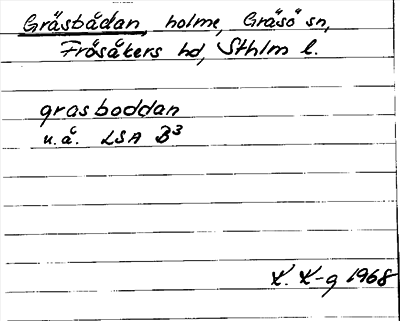 Gräsbådan, holme, Gräsö sn,
Frösåkers hd, Sthlm l.
grasboddan
u.å. LSA B³
K. K-g 1968